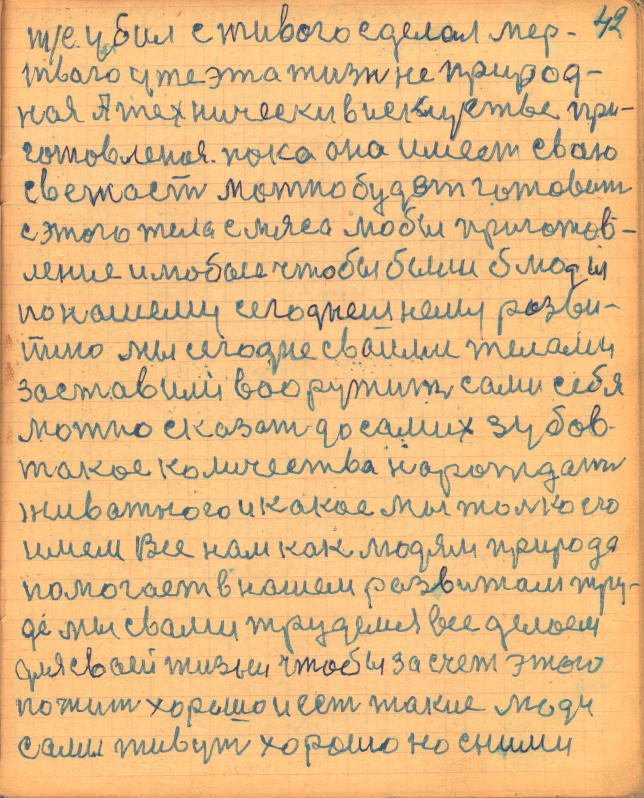 42
т/е. убил с живого сделал мер-
тваго уже эта жизн не природ-
ная А технически в искуства при-
готовленая. пока она имеет сваю
свежаст можно будет готовит
с этого тела с мяса мобы приготов-
ление и мобые чтобы были бмоды
по нашему сегоднешнему разви-
тию мы сегодне сваими телами
заставили вооружит сами себя
можно сказат до самих зубов.
такое количества нарождат
живатного и какое мы толко его
имем Все нам как людям природа
помогает в нашем развитам тру-
де мы свами трудемся все делаем
для сваей жизни чтобы за счет этого
пожит хорошо и ест такие люди
сами живут хорошо но сними